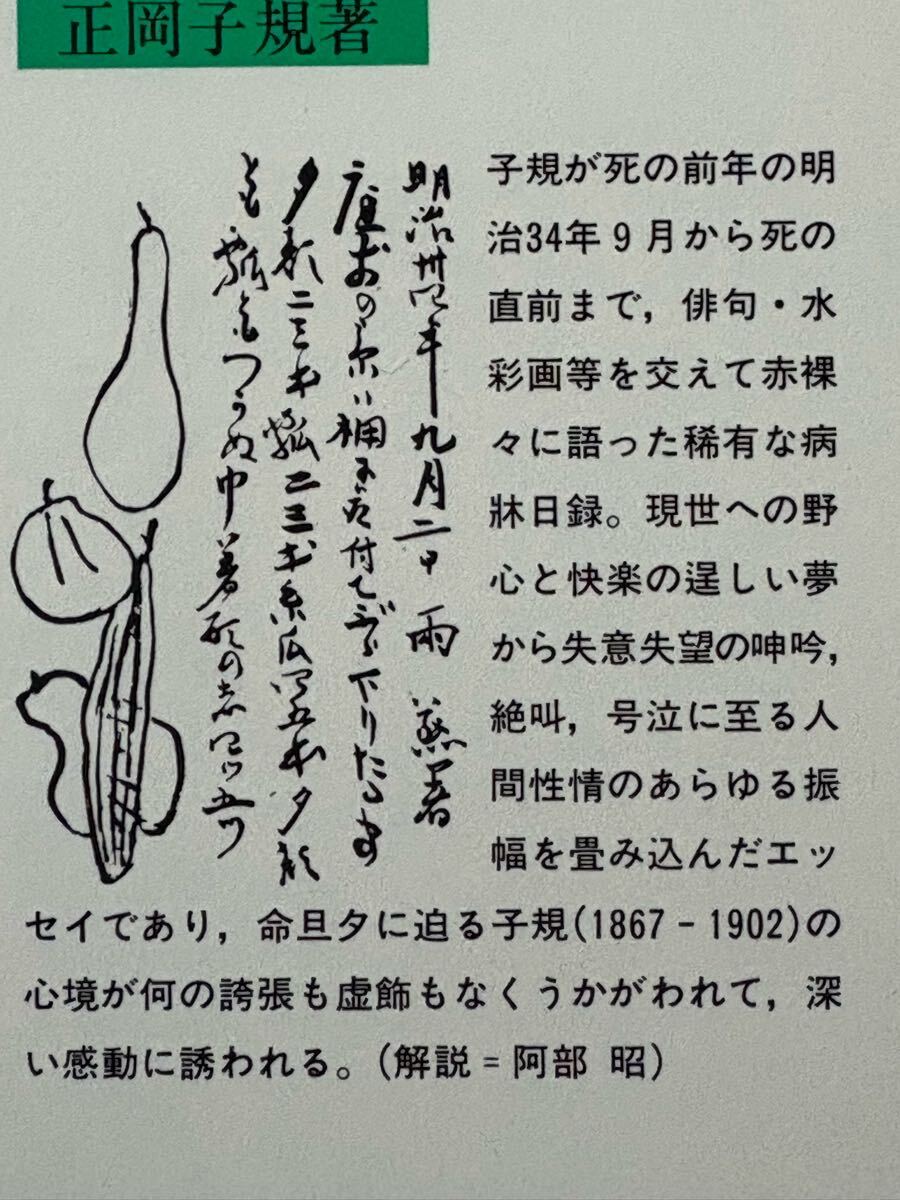 正岡子規著
明治卅四年九月二日 雨 蒸暑
庭前の景ハ棚に取付てぶら下りたるもの
夕顔二三本瓢二三本糸瓜四五本夕顔
とも瓢ともつかぬ巾着形の者四ツ五ツ
子規が死の前年の明
治34年9月から死の
直前まで，俳句・水
彩画等を交えて赤裸
々に語った稀有な病
牀日録。現世への野
心と快楽の逞しい夢
から失意失望の呻吟，
絶叫，号泣に至る人
間性情のあらゆる振
幅を畳み込んだエッ
セイであり，命旦夕に迫る子規(1867－1902)の
心境が何の誇張も虚飾もなくうかがわれて，深
い感動に誘われる。(解説＝阿部 昭)